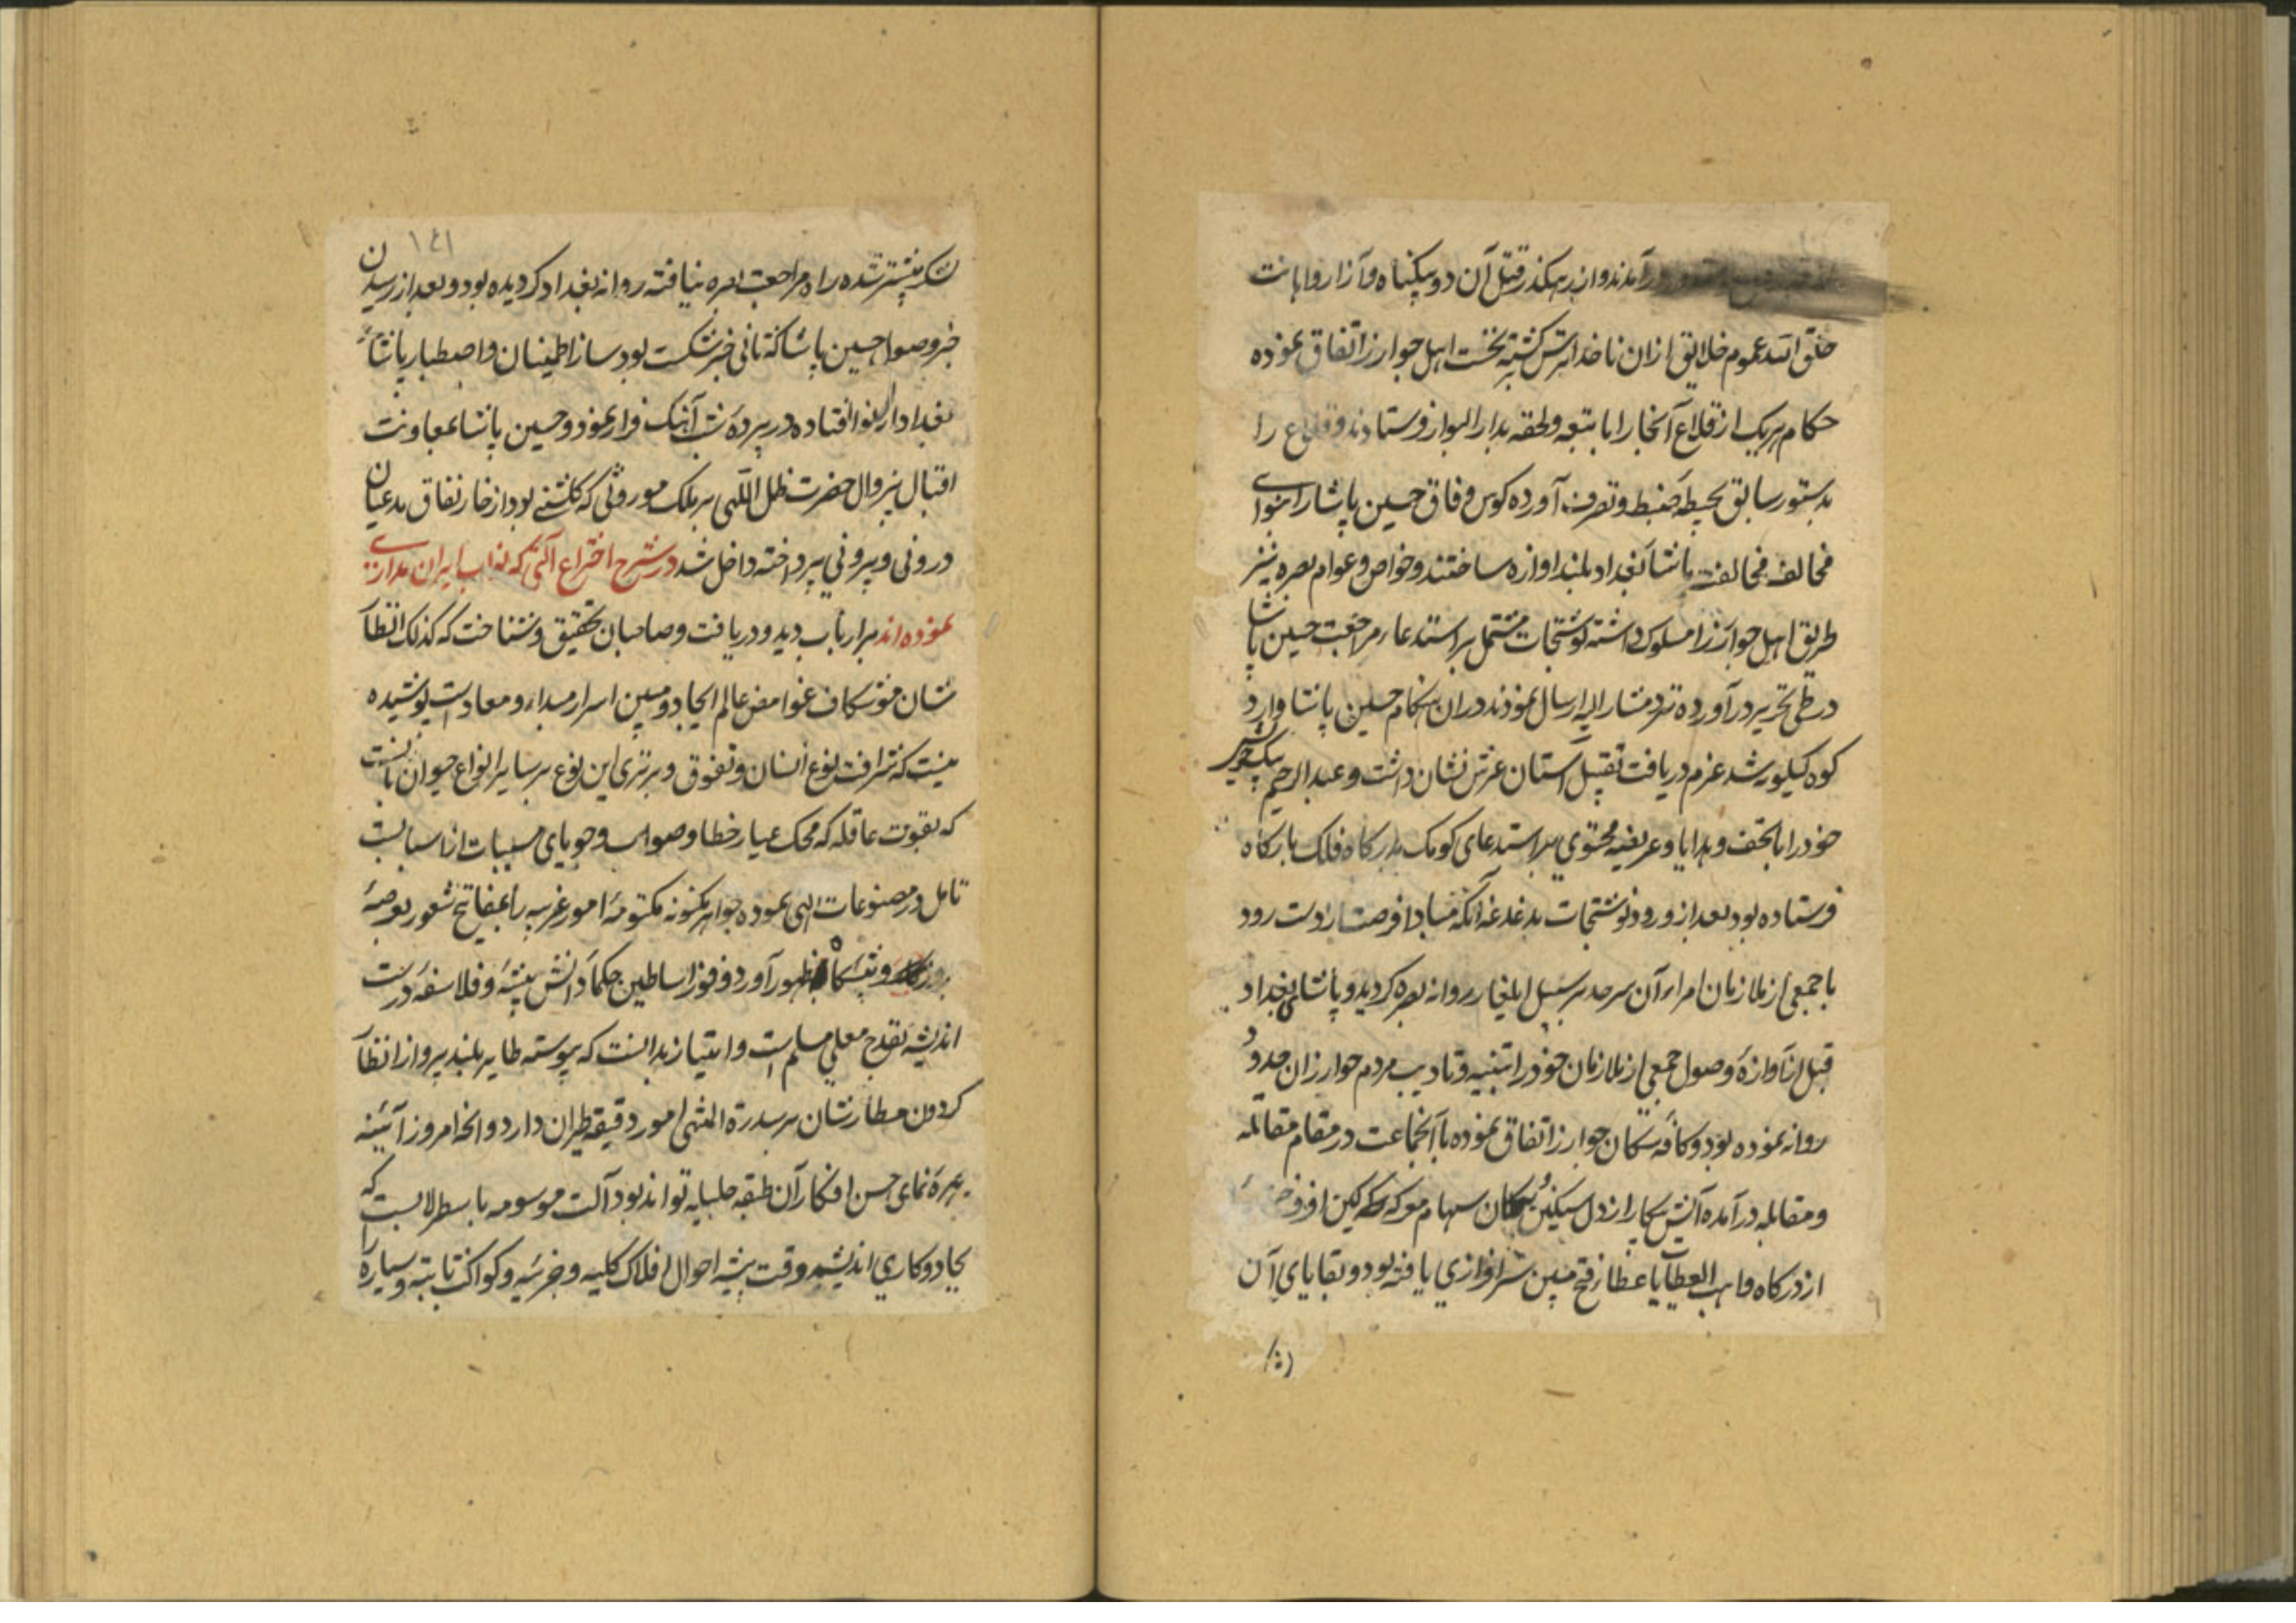 درآمدند و از رهگذر قتل آن دو بیگناه و آزار و اهانت
خلق الله عموم خلایق ازان ناخدا ترس کشته نخست اهل جوارز اتفاق نموده
حکام هریک از قلاع آنجا را با تبعه و لحقه بدار البوار فرستادند و قلاع را
بدستور سابق بحیطه ضبط و تصرف آورده کوس وفاق حسین پاشا را بنوای
مخالف مخالفت پاشا بغداد بلند اوازه ساختند و خواص و عوام بصره نیز
طریق اهل جوارز را مسلوک داشته نوشتجات مشتمل بر استدعاء مراجعت حسین پاشا
در طی تحریر درآورده نزد مشار الیه ارسال نمودند دران هنگام حسین پاشا وارد
کوه کیلویه شده عزم دریافت تقبیل آستان عرش نشان داشت و عبد الرحیم بیک
خود را با تحف و هدایا و عریضه محتوی بر استدعای کومک بدرکاه فلک بارکاه
فرستاده بود بعد از ورود نوشتجات بدغدغه آنکه مبادا فرصت از دست رود
با جمعی از ملازمان امراء آن سرحد بر سبیل ایلغار روانه بصره کردید و پاشای بغداد
قبل از آوازه وصول جمعی از ملازمان خود را تنبیه و تادیب مردم جوارز ان حدود
روانه نموده بود و کافه سکان جوارز اتفاق نموده با آنجماعت در مقام مقاتله
و مقابله درآمده آتش پیکار از دل سنکین پیکان سهام معرکه کین افروخته
از درکاه واهب العطایا عطا زفتح مبین سرافرازی یافته بود و بقایای آن
۱۴۱
لشکر بیشتر شده راه مراجعت بصره نیافته روانه بغداد کردیده بود و بعد از رسیدن
خبر وصول حسین پاشا که ثانی خبر شکست بود ساز اطمینان و اصطبار پاشاء
بغداد از نوا افتاده در پرده شب آهنک فرار نمود و حسین پاشا بمعاونت
اقبال بیزوال حضرت ظل اللهی بر ملک موروثی که کلشنی بود از خار نفاق مدعیان
درونی و بیرونی پرداخته داخل شد در شرح اختراع آلتی که نواب ایران مداری
نموده اند بر ارباب دید و دریافت و صاحبان تحقیق و شناخت که کذلک انظار
شان موشکاف غوامض عالم ایجاد و مبین اسرار مبداء و معادست پوشیده
نیست که شرافت نوع انسان و تفوق و برتری این نوع بر سایر انواع حیوان بآنست
که بقوت عاقله که محک عیار خطا و صواب و جویای مسببات از اسبابست
تامل در مصنوعات الهی نموده جواهر مکنونه مکتومه امور غریبه را بمفاتیح شعور بعرصه
بروز و پیشکاه ظهور آورد و فوز اساطین حکماء دانش پیشه و فلاسفه درست
اندیشه بقدح معلی مسلم است و امتیاز بدانست که پیوسته طایر بلند پرواز انظار
کردون مطارشان بر سدرة المنتهی امور دقیقه طیران دارد و انچه امروز آئینه
چهره نمای حسن افکار آن طبقه جلیله تواند بود آلت موسومه باسطرلابست که
بجادوکاری اندیشه دقت پیشه احوال افلاک کلیه و جزئیه و کواکب ثابته و سیاره را